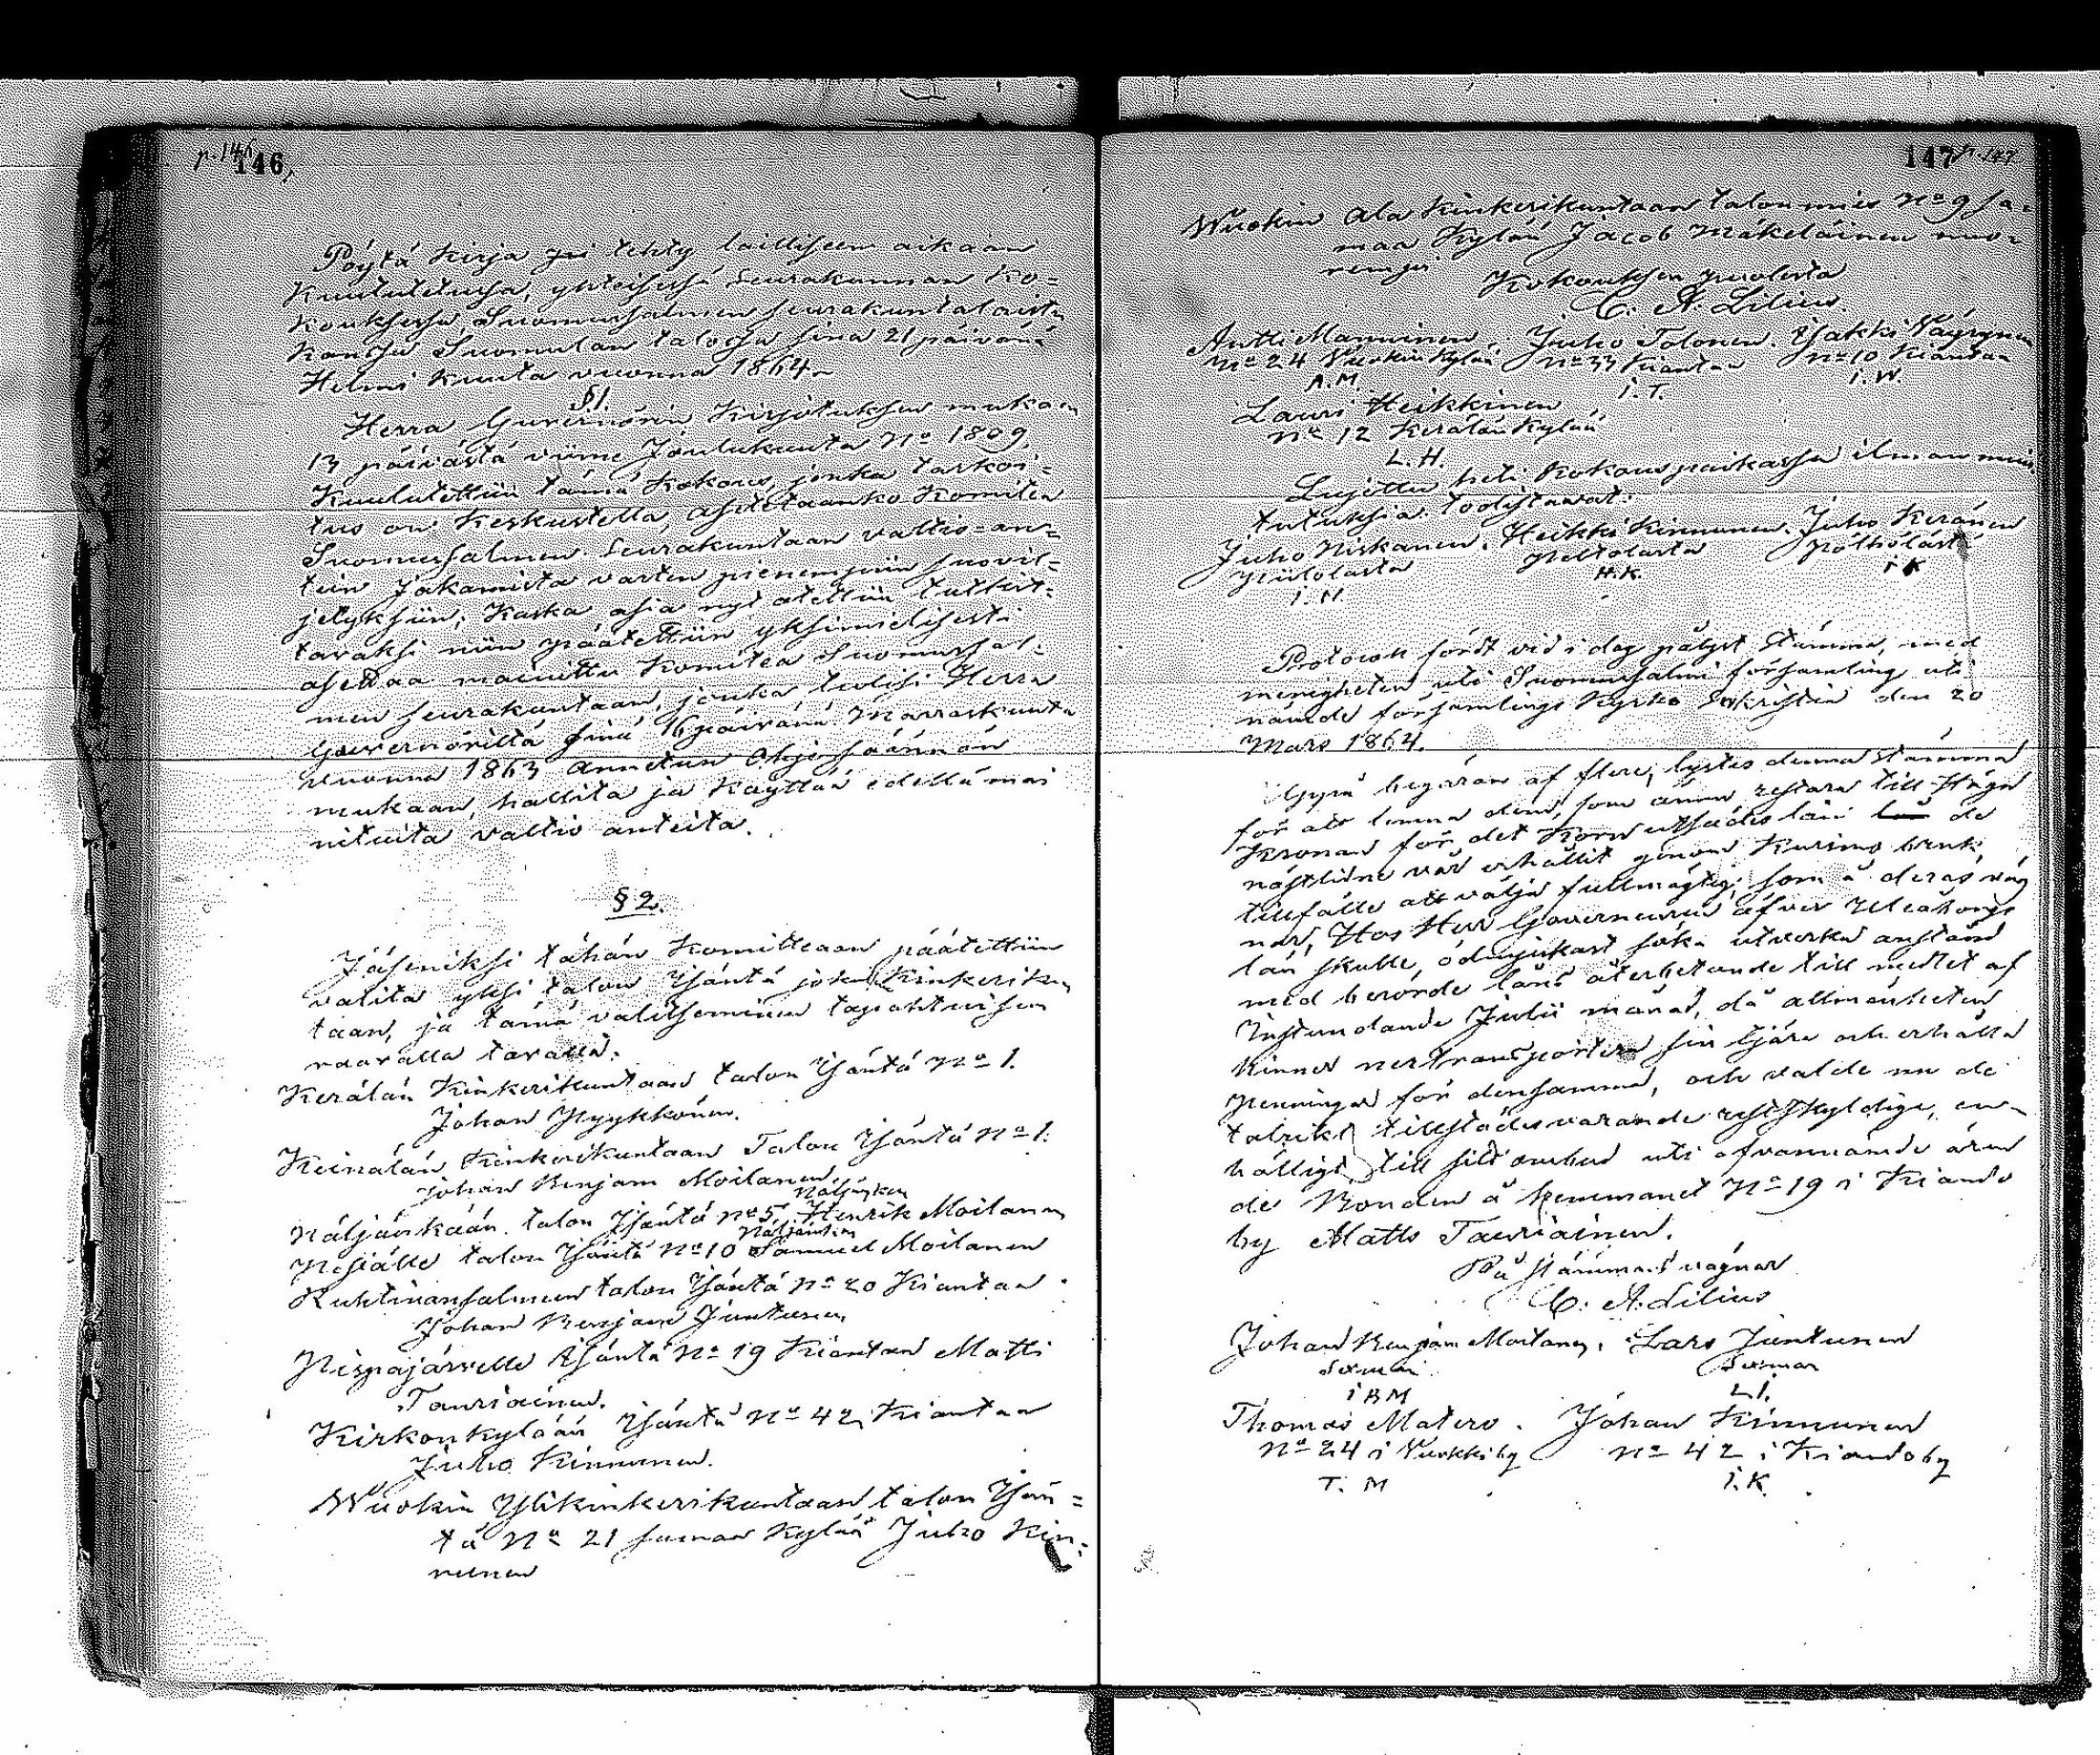 p. 146
146,
Pöytä kirja pri tehty lailliseen aikaan
Kuulutetussa, ykteisessä seurakunnan Ko=
kouksessa, Suomussalmen seurakuntalaisten
kansa Suomulan talossa sinä 21 päivänä
Helmi kuuta vuonna 1864.
§1.
Herra Guvernörin Kirjotuksen mukaan
13 päivästä viime Joulukuuta No 1809,
Kuulutettiin tämä Kokous, jonka tarkoi=
tus on Keskustella, asetetaanko Komitea
Suomussalmen Seurakuntaan valtio=an=
tein Jakamista varten pienempiin suovil=
jelyksiin; Koska asia nyt otettiin tutkit=
tavaksi niin päätettiin yksimielisesti
asettaa mainittu Komitea Suomussal=
men seurakuntaan, jonka tulisi Herra
Guvernöriltä sinä 16 päivänä Marraskuuta
vuonna 1863 annetun Ohjesäännön
mukaan, hallita ja Käyttää edellä mai
nituita valtio anteita.
§ 2.
Jäseniksi tähän Komitteaan päätettiin
valita yksi talon Isäntä joka Kinkeriku
taan, ja tämä valitseminen tapahtui sen
raavalla tavalla:
Kerälän Kinkerikuntaan talon Isäntä No 1.
Johan Kyykkönen.
Keinälän Kinkerikuntaan Talon Isäntä No 1.
Johan Benjam Moilanen
Näljängän
Näljänkään talon Isäntä No 5 Henrik Moilanen
Näljängän
Pesiälle talon Isäntä No 10 Samuel Moilanen
Ruhtinansalmen talon Isäntä No 20 Kiantan
Johan Benjam Juntunen
Pispajärvelle Isäntä No 19 Kiantan Matti
Tauriainen.
Kirkonkylään Isäntä No 42, Kiantan
Juho Kinnunen.
Wuokin Ylikinkerikuntaan talon Isän=
tä No 21 saman Kylää Juho Kin=
nunen
147
p. 147
Wuokin Ala Kinkerikuntaan talon mies No 9 sa=
maa Kylää Jacob Mäkeläinen nuo=
rempi
Kokouksen puolesta
C. A. Lilius.
Antti Manninen, Juho Tolonen. Jakki Väyrynen
No 24 Vuokin Kylää No 33 Kiantan No 10 Kiantan
A. M. I. T. I. W.
Lauri Heikkinen
No 12 Kerälän Kylää
L. H.
Lujettu heti Kokouspaikassa ilman muis
tutuksia todistavat:
Juho Niskanen. Heikki Kinnunen. Juho Keränen
Peltolasta Pölhölästä
I. N. H. K. I K
Protocoll fördt vid i dag pålyst stämma, med
menigheten uti Suomussalmi församling, uti
nämde församlings Kyrko Sakristia den 20
Mars 1864.
begäran af flere, lystes denna stämma
för att lemna dem, som ännu restera till Höga
Kronan för det Korn utsädes lån de
nästlidne vår erhållit genom Kurimo bruk,
tillfälle att välja fullmägtig, som å deras väg
nar, Hos Herr Governeuren öfver Uleåborgs
län skulle, ödmjukast söka utverka anstånd
med berörde låns återbetande till medlet af
Instundande Julii månad, då allmänheten
hinner nertransportera sin tjära och erhålla
penningar för densamma, och valde nu de
talrikt tillstädesvarande restskyldige, en=
hälligt till sitt ombud uti ofvannämde ären
de Bonden å hemmanet No 19 i Kianto
by Matts Tauriainen.
På Stämmans vägnar
C. A. Lilius
Johan Benjam Moilanen. Lars Juntunen
Sexman Sexman
I B M L I.
Thomas Matero. Johan Kinnunen
No 24 i Vuokki by No 42 i Kianto by
T. M I. K